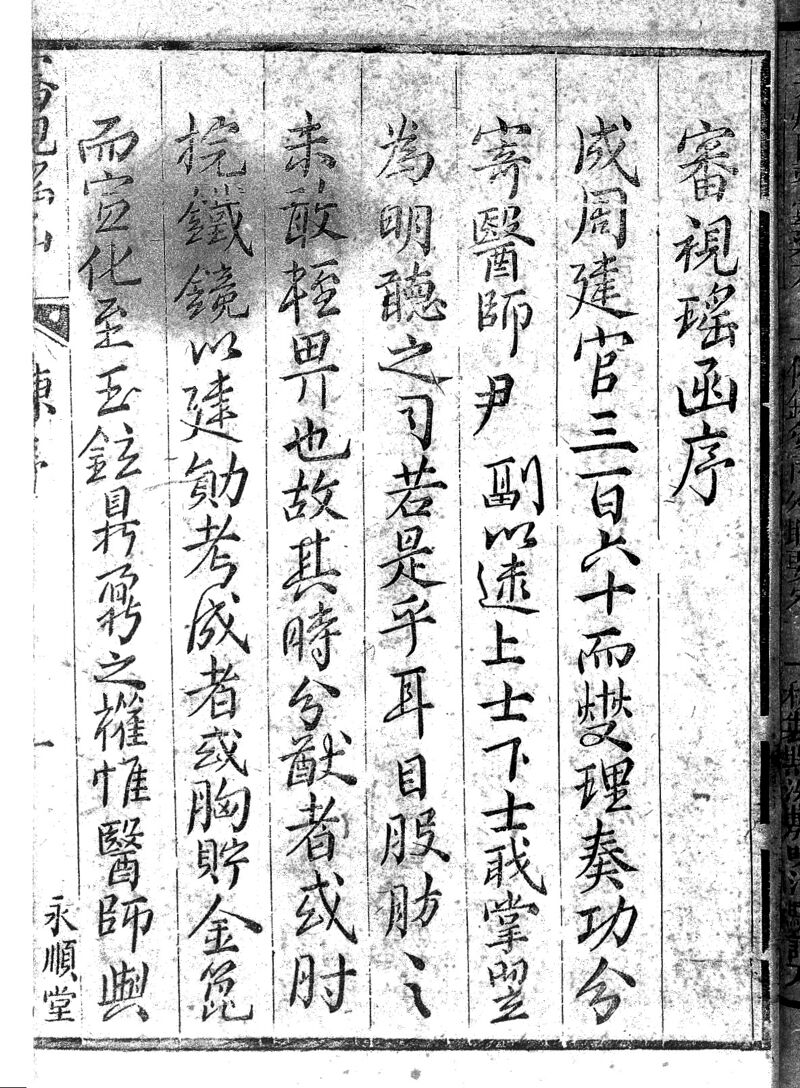 審視瑤函序
成周建官三百六十而燮理奏功分
寄醫師尹 副以逮上士下士職掌翌
為明聽之司若是乎耳目股肱之
未敢輕畀也故其時分猷者或肘
捖鐵鏡以建勛考成者或胸貯金篦
而宣化至玉鉉鼎鼐之權惟醫師與
永順堂